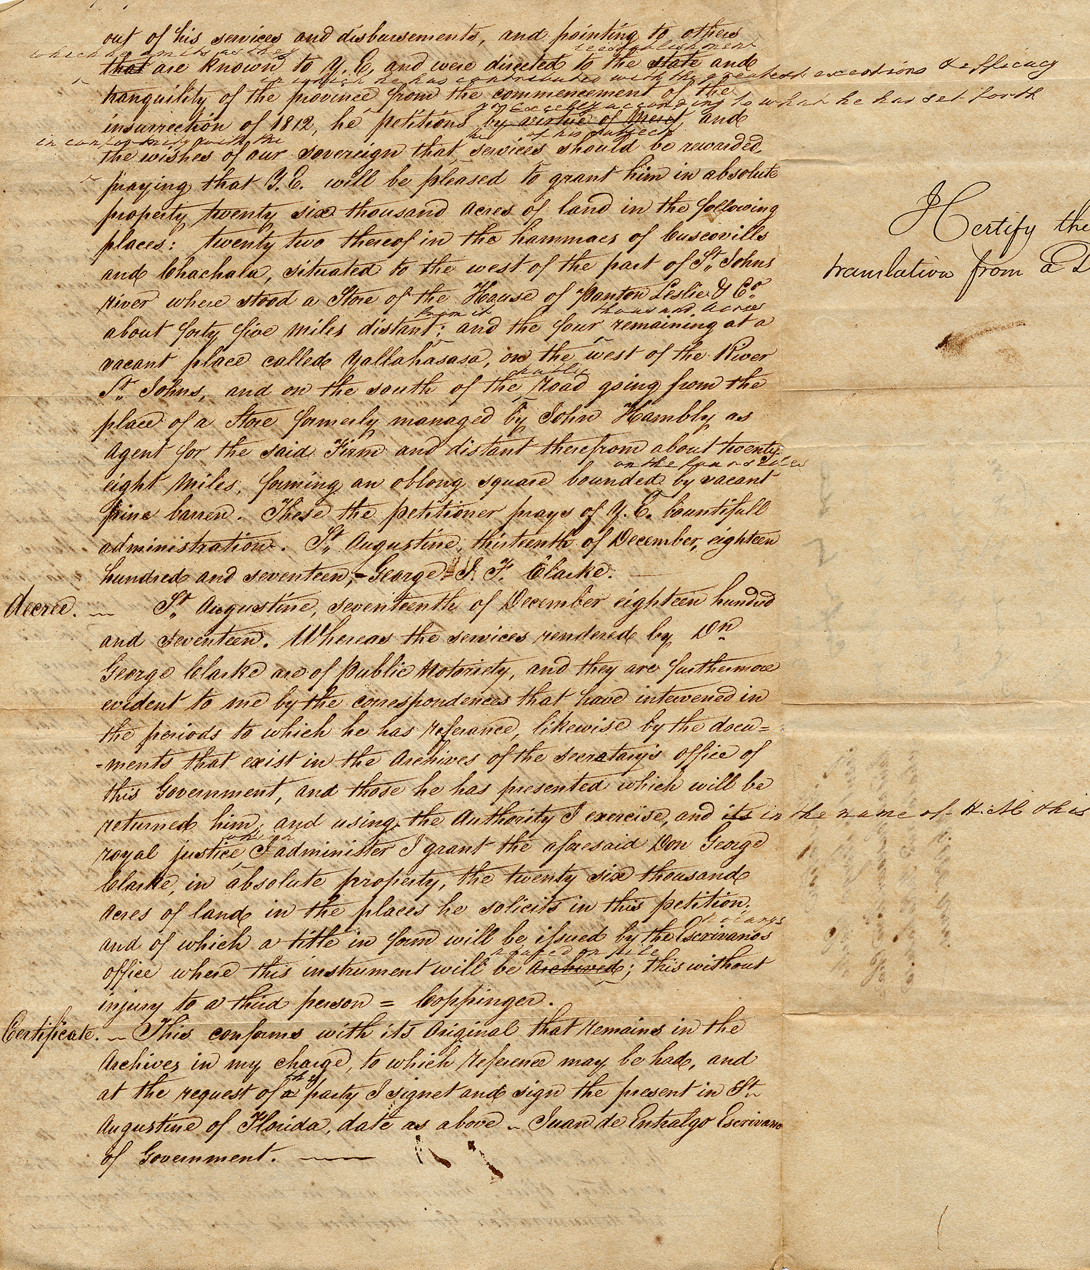 out of his services and disbursements, and pointing to others
which he omits as they reestablishment
that are known to Y. E. and were directed to the state and
in which he has contributed with the greatest exertions & efficacy
tranquility of the province from the commencement of the
Y. Excelly according to what he has set forth
insurrection of 1812, he petitions by virtue of and
in conformity with the his of his subjects
the wishes of our sovereign that services should be rewarded
praying that Y. E. will be pleased to grant him in absolute
property twenty six thousand acres of land in the following
places: twenty two thereof in the hammacs of Cuscovilla
and Chachala, situated to the west of the part of St. Johns
river where stood a Store of the House of Panton Leslie & Co.
from it thousand acres
about forty five miles distant; and the four remaining at a
vacant place called Yallahasasa, on the west of the River
public
St. Johns, and on the south of the road going from the
place of a Store formerly managed by John Hambly as
agent for the said Firm and distant therefrom about twenty
on the four sides
eight miles, forming an oblong square bounded by vacant
pine barren. These the petitioner prays of Y. E. bountifull
administration. St. Augustine, thirteenth of December, eighteen
hundred and seventeen, = George = J. F. Clarke.
decree. St. Augustine, seventeenth of December eighteen hundred
and seventeen. Whereas the services rendered by Dn
George Clarke are of Public Notoriety, and they are furthermore
evident to me by the correspondences that have intervened in
the periods to which he has referance, likewise by the docu=
-ments that exist in the Archives of the secretary's office of
this Government, and those he has presented which will be
returned him, and using the Authority I exercise, and its in the name of H. M. & his
which
royal justice I administer I grant the aforesaid Don George
Clarke, in absolute property, the twenty six thousand
acres of land in the places he solicits in this petition.
and of which a title in form will be issued by the Escrivanos
placed on file
office where this instrument will be archived; this without
injury to a third person = Coppinger.
Certificate. This conforms with its Original that remains in the
Archives in my charge, to which reference may be had, and
the
at the request of a party I signet and sign the present in St.
Augustine of Florida, date as above Juan de Entralgo Escrivano
of Government.
I Certify the
translation from a